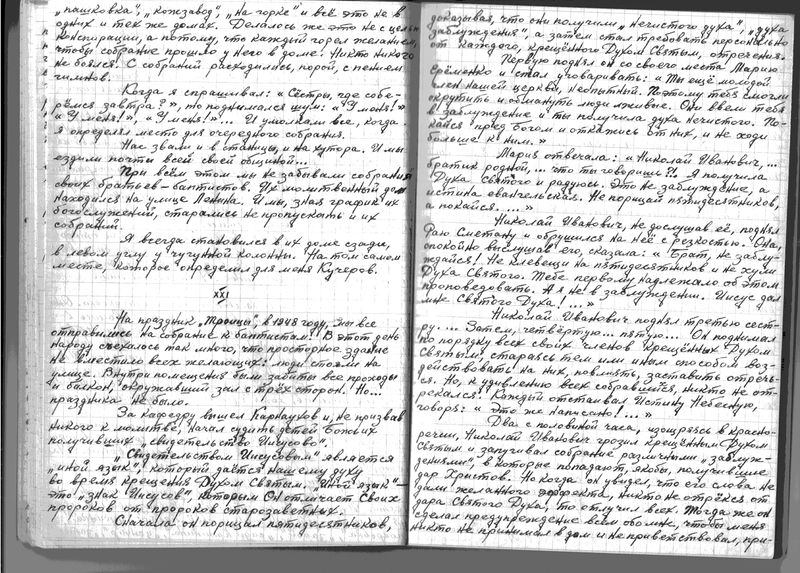 „пашковка", „кожзавод", „на горке" и всё это не в
одних и тех же домах. Делалось же это не с целью
конспирации, а потому, что каждый горел желанием,
чтобы собрание прошло у него в доме. Никто никого
не боялся. С собраний расходились, порой, с пением
гимнов.
Когда я спрашивал: „Сёстры, где собе-
рёмся завтра?", то поднимался шум: „У меня!"
„У меня!", „У меня!"... И умолкали все, когда
я определял место для очередного собрания.
Нас звали и в станицы, и на хутора. И мы
ездили почти всей своей общиной...
При всём этом мы не забывали собрания
своих братьев-баптистов. Их молитвенный дом
находился на улице Ленина. И мы, зная график их
богослужений, старались не пропускать и их
собраний.
Я всегда становился в их доме сзади,
в левом углу у чугунной колонны. На том самом
месте, которое определил для меня Кучеров.
XXI
На праздник „Троицы", в 1948 году, мы все
отправились на собрание к баптистам. В этот день
народу съехалось так много, что просторное здание
не вместило всех желающих: люди стояли на
улице. Внутри помещения были забиты все проходы
и балкон, окружавший зал с трёх сторон. Но...
праздника не было.
За кафедру вышел Карнаухов и, не призвав
никого к молитве, начал судить детей Божьих
получивших „свидетельство Иисусово".
„Свидетельством Иисусовым" является
„иной язык", который даётся нашему духу
во время крещения Духом Святым. „Иной язык" –
это „знак Иисусов", которым Он отличает Своих
пророков от пророков старозаветных.
Сначала он порицал пятидесятников,
доказывая, что они получили „нечистого духа", „духа
заблуждения", а затем стал требовать персонально
от каждого, крещённого Духом Святым, отречения.
Первую поднял он со своего места Марию
Ерёменко и стал уговаривать: „Ты ещё молодой
член нашей церкви, неопытный. Поэтому тебя смогли
окрутить и обмануть люди лживые. Они ввели тебя
в заблуждение и ты получила духа нечистого. По-
кайся пред Богом и откажись от них, и не ходи
больше к ним."
Мария отвечала: „Николай Иванович,...
братик родной,... что ты говоришь?! Я получила
Духа Святого и радуюсь. Это не заблуждение, а
истина евангельская. Не порицай пятидесятников,
а покайся....."
Николай Иванович, не дослушав её, поднял
Раю Сметану и обрушился на неё с резкостью. Она,
спокойно выслушав его, сказала: „Брат, не заблу-
ждайся! Не клевещи на пятидесятников и не хули
Духа Святого. Тебе первому надлежало об этом
проповедовать. А я не в заблуждении. Иисус дал
мне Святого Духа!..."
Николай Иванович поднял третью сест-
ру.... Затем, четвёртую... пятую... Он поднимал
по порядку всех своих членов крещённых Духом
Святым, стараясь тем или иным способом воз-
действовать на них, повлиять, заставить отречь-
ся. Но, к удивлению всех собравшихся, никто не от-
рекался! Каждый отстаивал Истину Небесную,
говоря: „Это же написано!..."
Два с половиной часа, изощряясь в красно-
речии, Николай Иванович грозил крещённым Духом
Святым и запугивал собрание различными „заблуж-
дениями", в которые попадают, якобы, получившие
дар Христов. Но когда он увидел, что его слова не
дали желанного эффекта, никто не отрёкся от
дара Святого Духа, то отлучил всех. Тогда же он
сделал предупреждение всем обо мне, чтобы меня
никто не принимал в дом и не приветствовал, при-